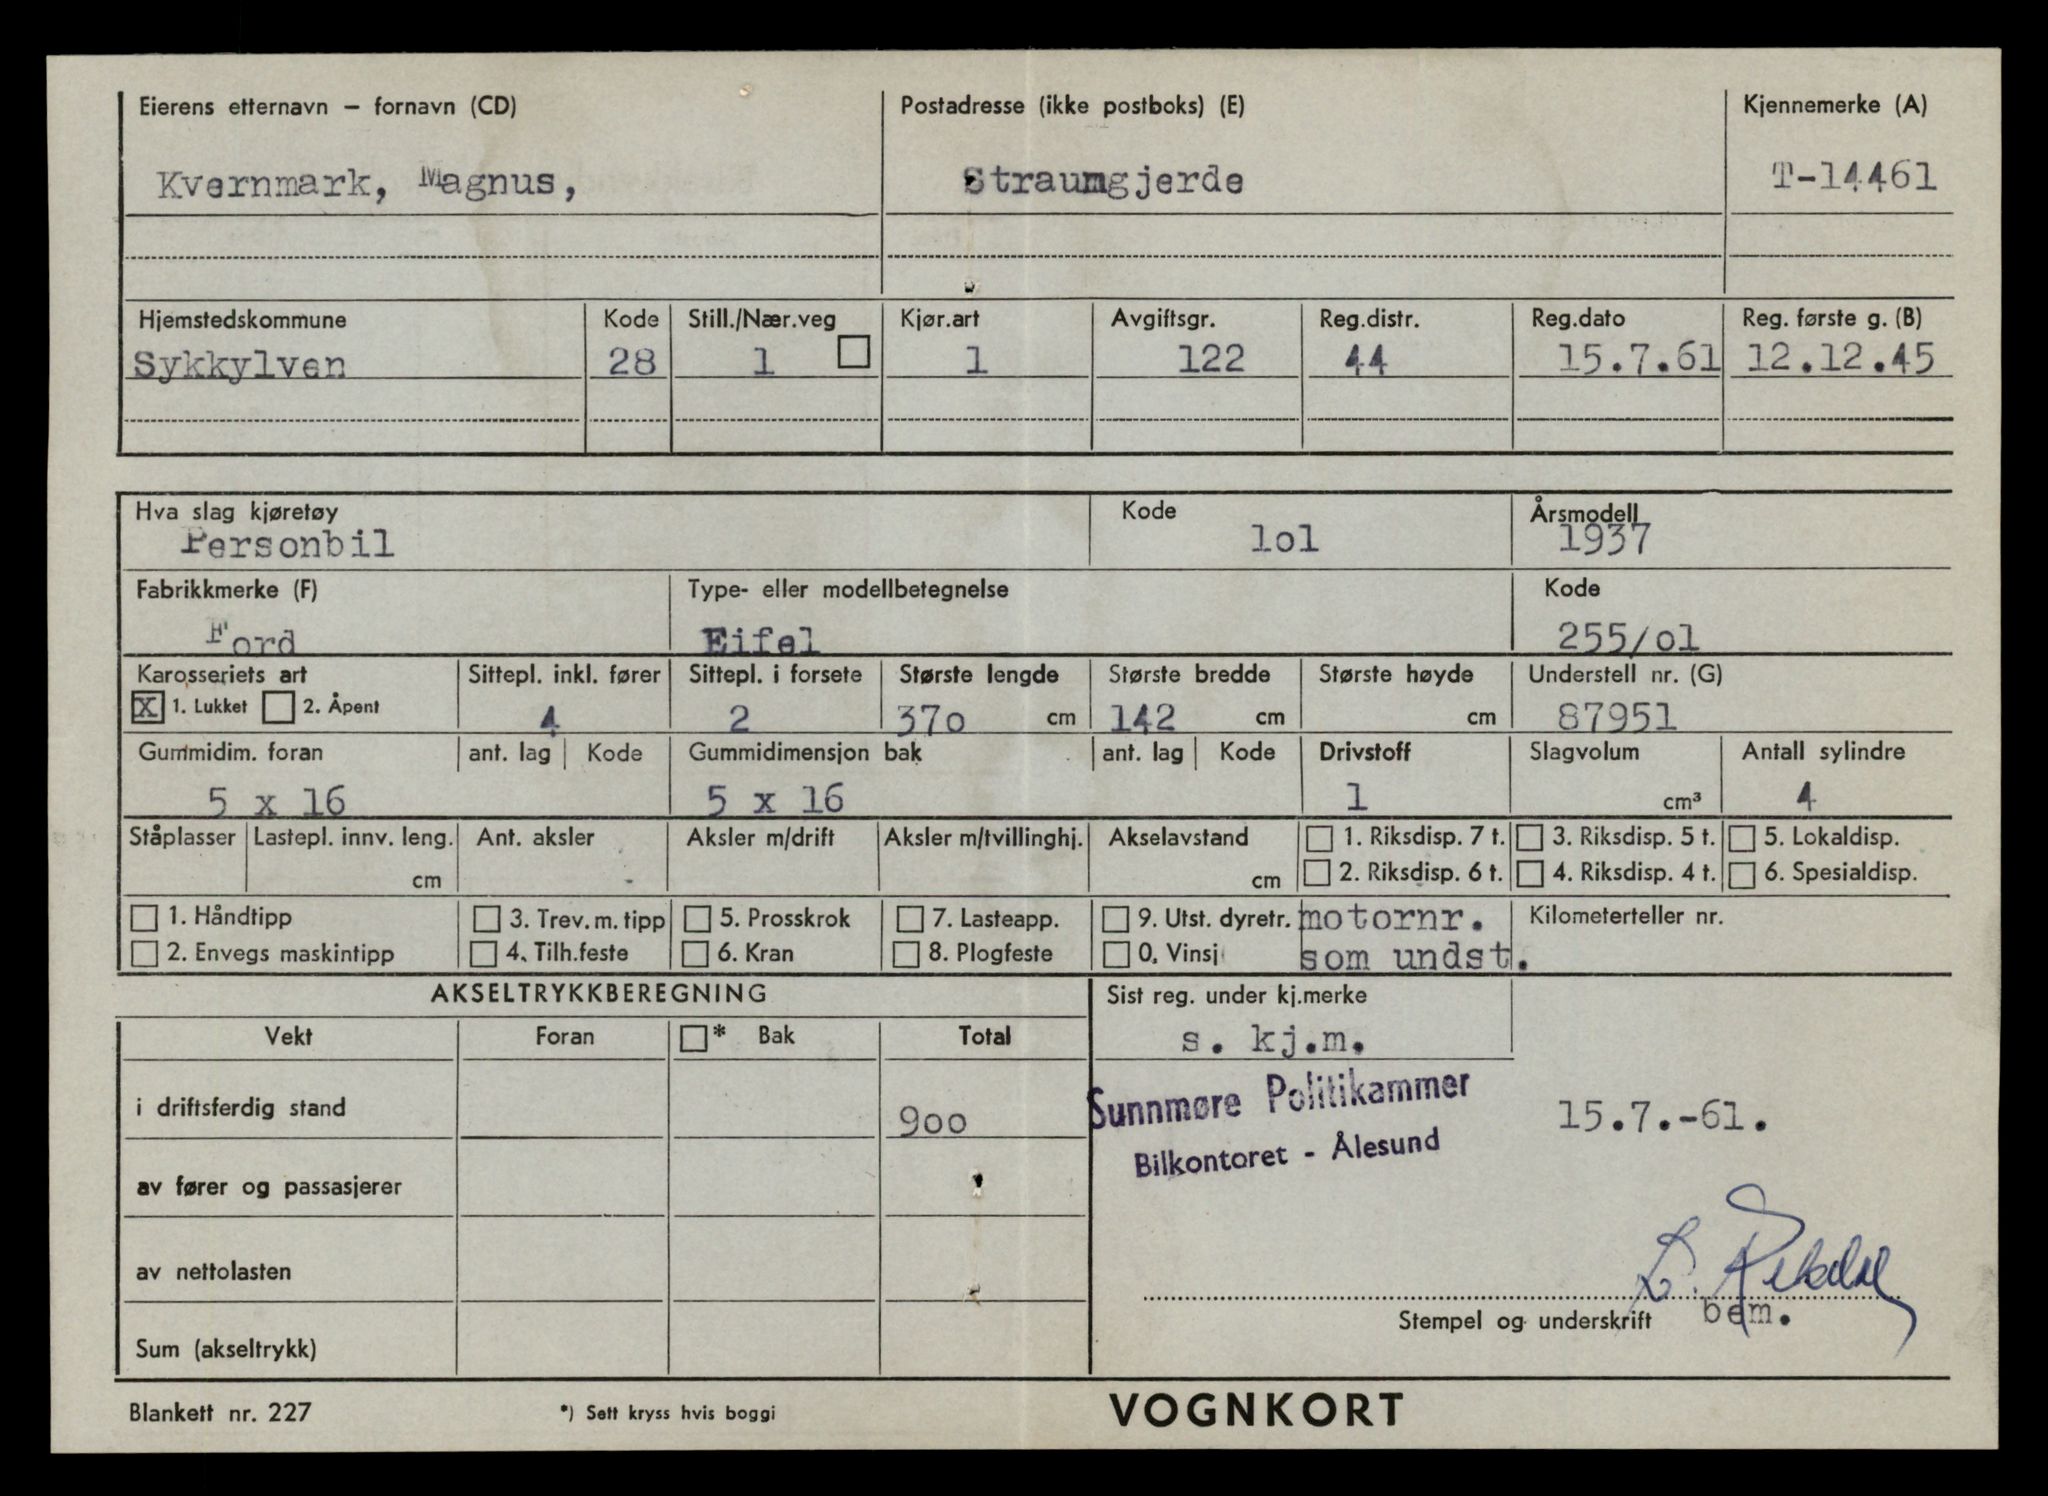 Eierens etternavn – fornavn (CD) Postadresse (ikke postboks) (E) Kjennemerke (A)
Kvernmark, Magnus, Straumgjerde T-14461
Hjemstedskommune Kode Still./Nær.veg Kjør.art Avgiftsgr. Reg.distr. Reg.dato Reg. første g. (B)
Sykkylven 28 1 1 122 44 15.7.61 12.12.45
Hva slag kjøretøy Kode Årsmodell
Personbil lol 1937
Fabrikkmerke (F) Type- eller modellbetegnelse Kode
Ford Eifel 255/ol
Karosseriets art Sittepl. inkl. fører Sittepl. i forsete Største lengde Største bredde Største høyde Understell nr. (G)
X 1. Lukket 2. Åpent 4 2 37o cm 142 cm cm 87951
Gummidim. foran ant. lag Kode Gummidimensjon bak ant. lag Kode Drivstoff Slagvolum Antall sylindre
5 x 16 5 x 16 1 cm³ 4
Ståplasser Lastepl. innv. leng. Ant. aksler Aksler m/drift Aksler m/tvillinghj. Akselavstand 1. Riksdisp. 7 t. 3. Riksdisp. 5 t. 5. Lokaldisp.
cm cm 2. Riksdisp. 6 t. 4. Riksdisp. 4 t. 6. Spesialdisp.
1. Håndtipp 3. Trev. m. tipp 5. Prosskrok 7. Lasteapp. 9. Utst. dyretr. motornr. Kilometerteller nr.
2. Envegs maskintipp 4. Tilh.feste 6. Kran 8. Plogfeste 0. Vinsj som undst.
AKSELTRYKKBEREGNING Sist reg. under kj.merke
Vekt Foran * Bak Total s. kj.m.
i driftsferdig stand 9oo Sunnmøre Politikammer 15.7.-61.
Bilkontoret - Ålesund
av fører og passasjerer
av nettolasten
Stempel og underskrift bem.
Sum (akseltrykk)
Blankett nr. 227 *) Sett kryss hvis boggi VOGNKORT